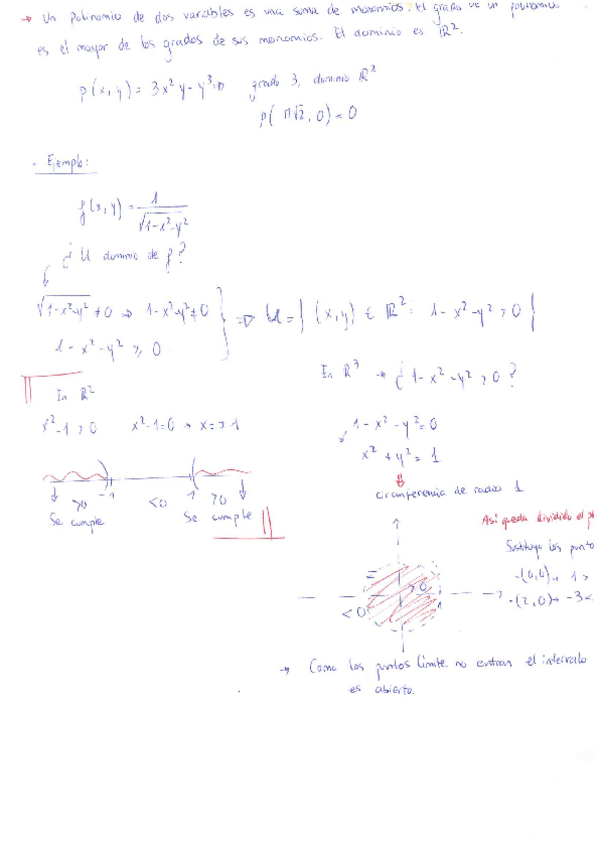 → Un polinomio de dos variables es una suma de monomios. El grado de un polinomio
es el mayor de los grados de sus monomios. El dominio es ℝ².
p(x,y) = 3x²y - y³ ⇒ grado 3, dominio ℝ²
p(π√2, 0) = 0
- Ejemplo:
f(x,y) = 1/√(1-x²-y²)
¿U dominio de f?
√(1-x²-y²) ≠ 0 → 1-x²-y² ≠ 0
1-x²-y² ≥ 0
} ⇒ U = { (x,y) ∈ ℝ² : 1-x²-y² > 0 }
In ℝ²
x²-1 > 0 x²-1=0 → x=±1
>0 -1 <0 1 >0
Se cumple Se cumple
In ℝ³ → ¿1-x²-y² > 0?
1-x²-y² = 0
x²+y² = 1
circunferencia de radio 1
Así queda dividido el
Sustituyo los punto
-(0,0) → 1 >
-(2,0) → -3 <
>0
<0
→ Como los puntos límite no entran el intervalo
es abierto.